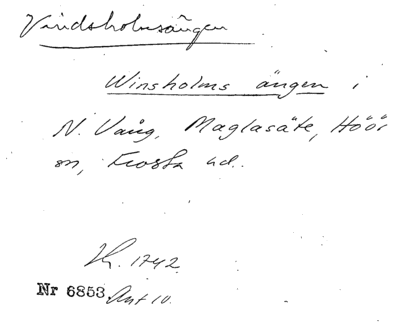 Vindsholmsängen
Winsholms ängen i
N. Vång, Maglasäte, Höör
sn, Frosta hd.
1742
Nr 6853 Akt 10.